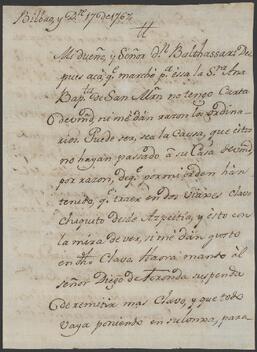 Bilbao, y Dre. 17 de 1767
Mi dueño, y Señor Dn. Balthassar: Des
pues acá qe. marchó pa. essa la Sra. Ana
Bapta. de San Mn. no tengo Carta
de vmd, ni me dán razon los ordina-
rios. Puede ser, sea la Causa, que estos
no hayan passado à su Casa de vmd
por razon, de qe. por mi orden han
tenido, qe. traer en dos viaxes Clavo
chiquito desde Azpeitia, y esto con
la mira de ver, si me dán gusto
en dho Clavo. Aora mando àl
señor Diego de suspenda
de remitir mas Clavo, y que todo
vaya poniendo en su lonxa, para